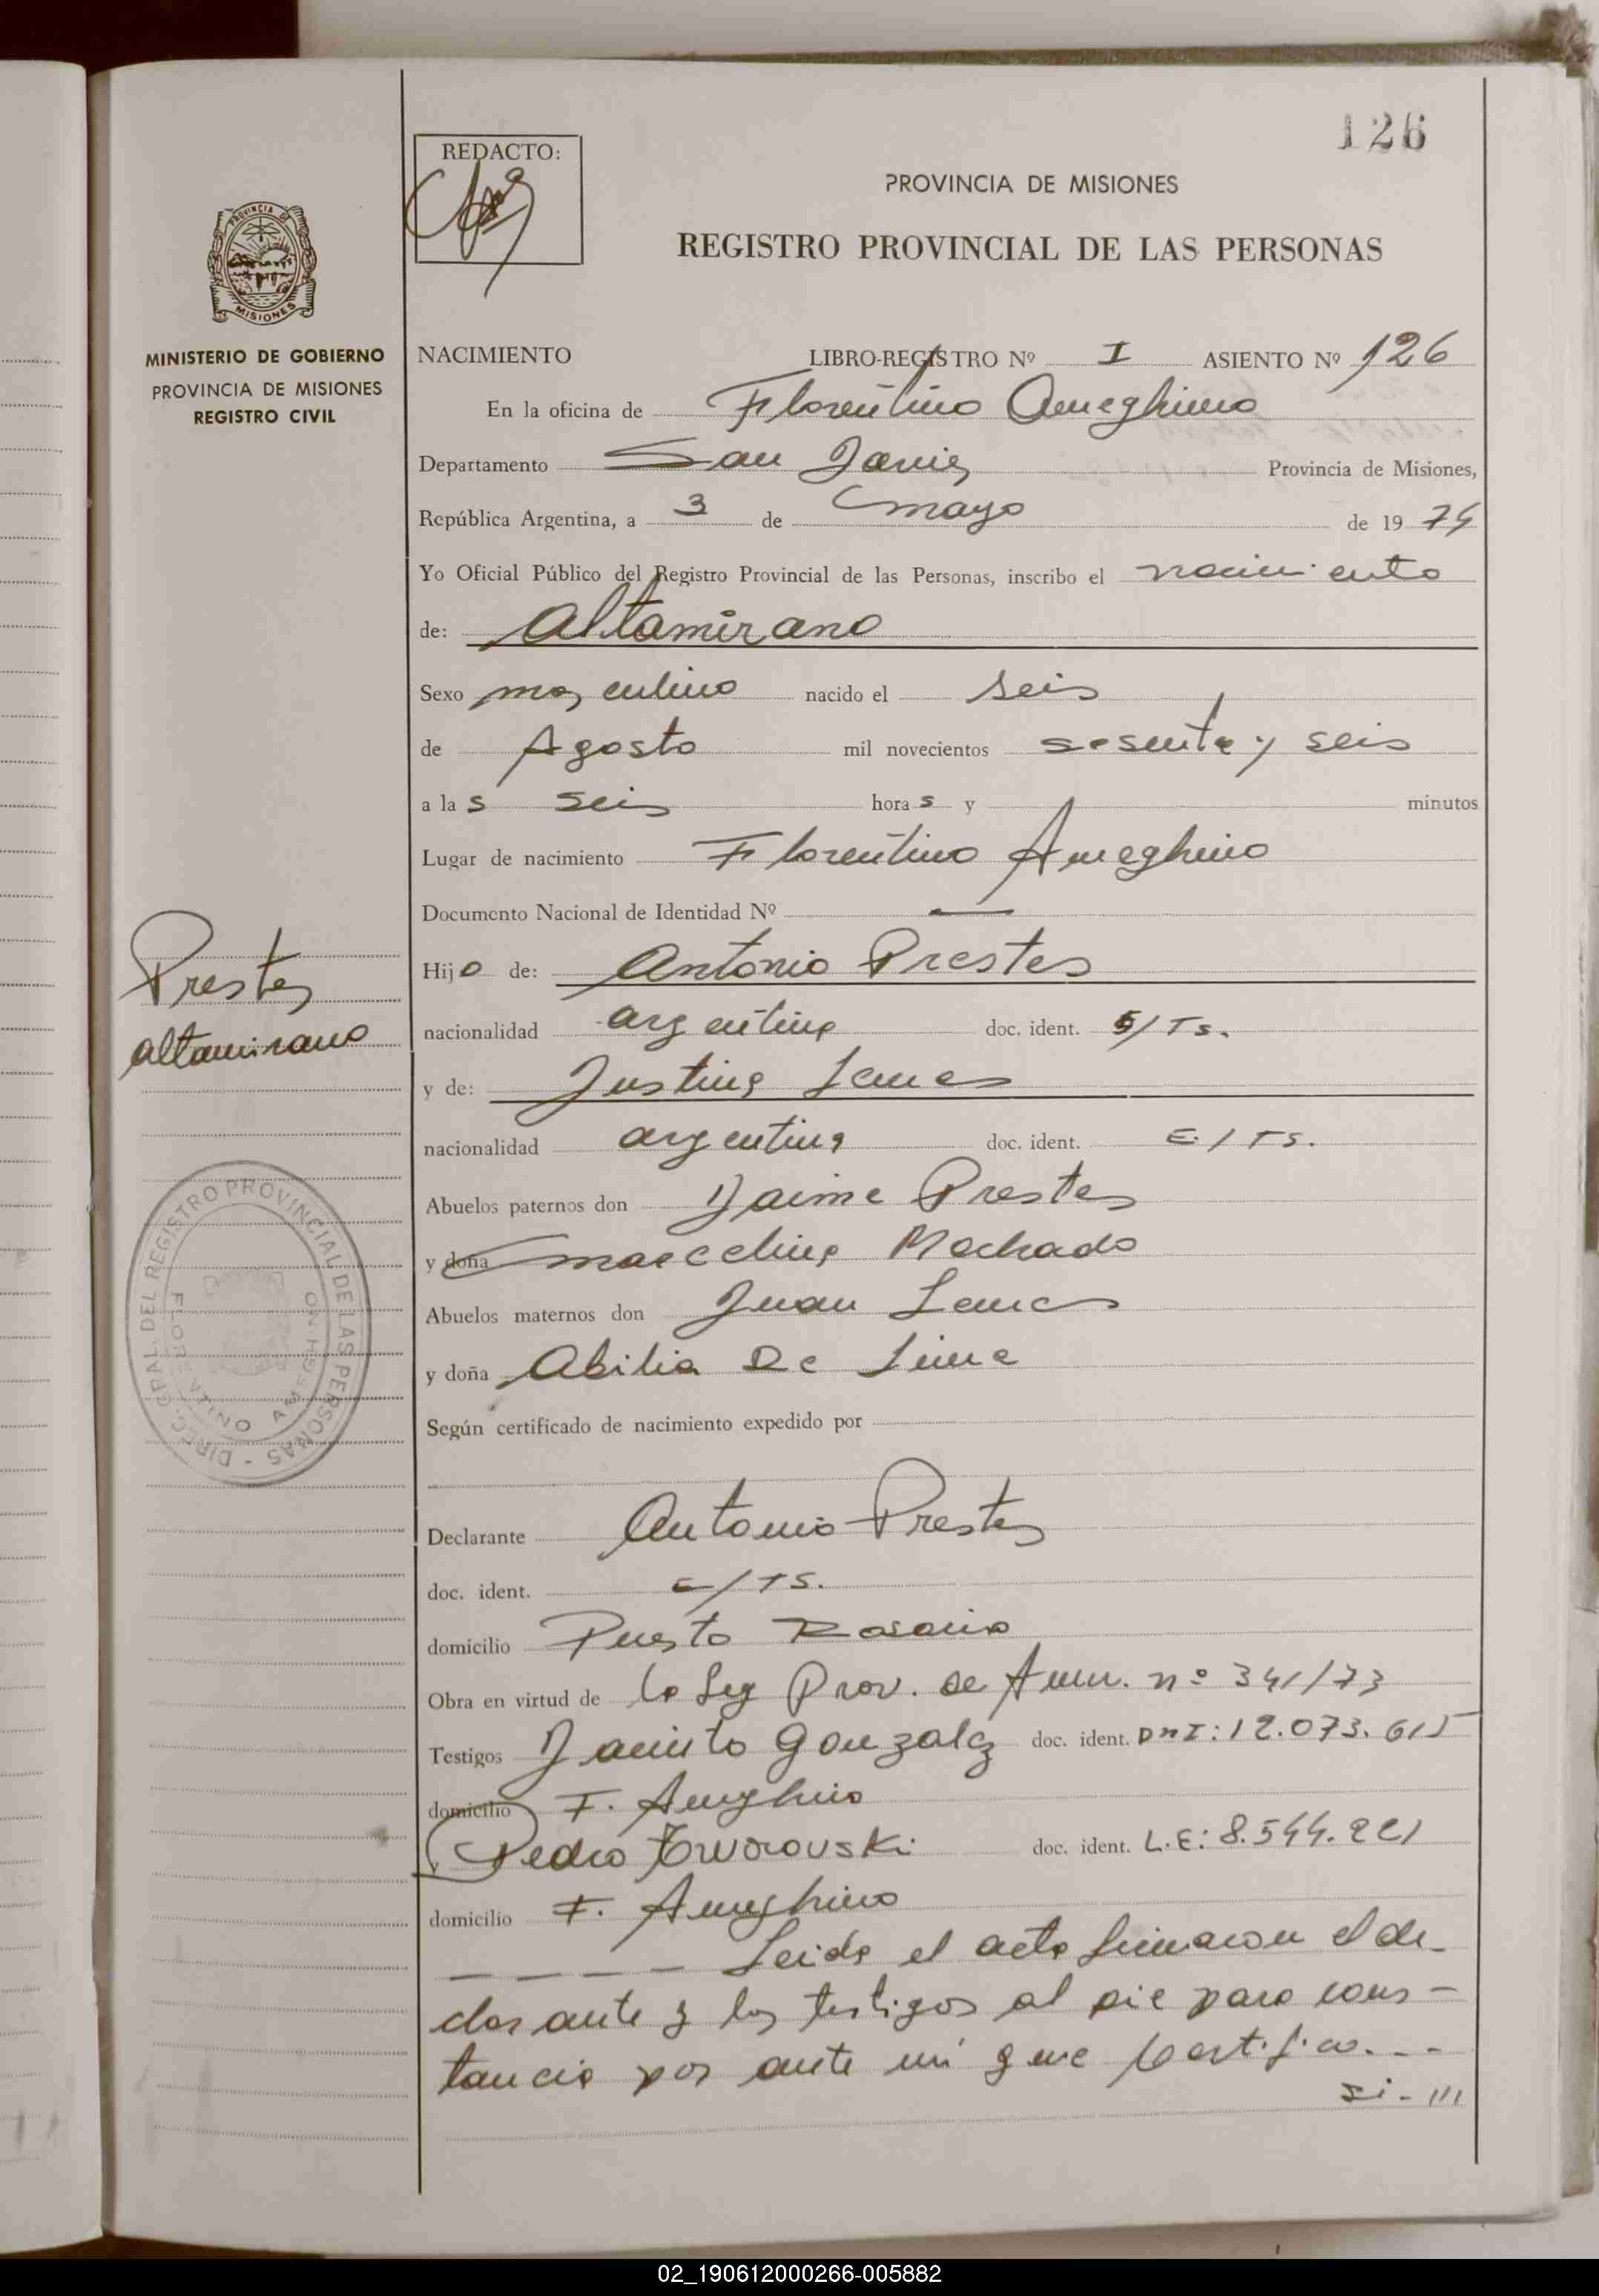 126
REDACTO:
PROVINCIA DE MISIONES
REGISTRO PROVINCIAL DE LAS PERSONAS
PROVINCIA DE
MISIONES
MINISTERIO DE GOBIERNO
PROVINCIA DE MISIONES
REGISTRO CIVIL
NACIMIENTO LIBRO-REGISTRO Nº I ASIENTO Nº 126
En la oficina de Florentino Ameghino
Departamento San Javier Provincia de Misiones,
República Argentina, a 3 de mayo de 19 74
Yo Oficial Público del Registro Provincial de las Personas, inscribo el nacimiento
de: Altamirano
Sexo masculino nacido el seis
de Agosto mil novecientos sesenta y seis
a las seis horas y minutos
Lugar de nacimiento Florentino Ameghino
Documento Nacional de Identidad Nº —
Prestes
Altamirano
Hijo de: Antonio Prestes
nacionalidad argentina doc. ident. S/Ts.
y de: Justina
nacionalidad argentina doc. ident. /TS.
Abuelos paternos don Jaime Prestes
y doña Marcelina Machado
Abuelos maternos don Juan
y doña Abilia De Lima
Según certificado de nacimiento expedido por
DIREC. GRAL. DEL REGISTRO PROVINCIAL DE LAS PERSONAS -
FLORENTINO AMEGHINO
Declarante Antonio Prestes
doc. ident. /TS.
domicilio Puerto Rosario
Obra en virtud de la Ley Prov. de Amn. nº 341/73
Testigos Jacinto Gonzalez doc. ident. DNI: 12.073.615
domicilio F. Ameghino
y Pedro doc. ident. L.E: 8.544.221
domicilio F. Ameghino
---- Leida el acta firmaron el de-
clarante y los testigos al pie para cons-
tancia por ante mi que certifico.--
si-///
02_190612000266-005882